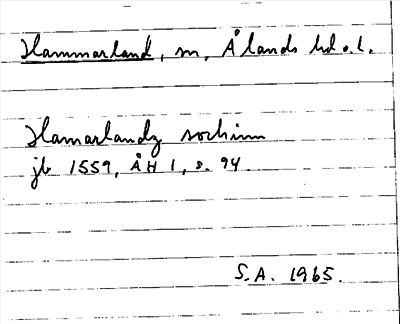 Hammarland, sn, Ålands hd o. l.
Hamarlandz sochnn
jb 1559, ÅH 1, s. 94.
S.A. 1965.